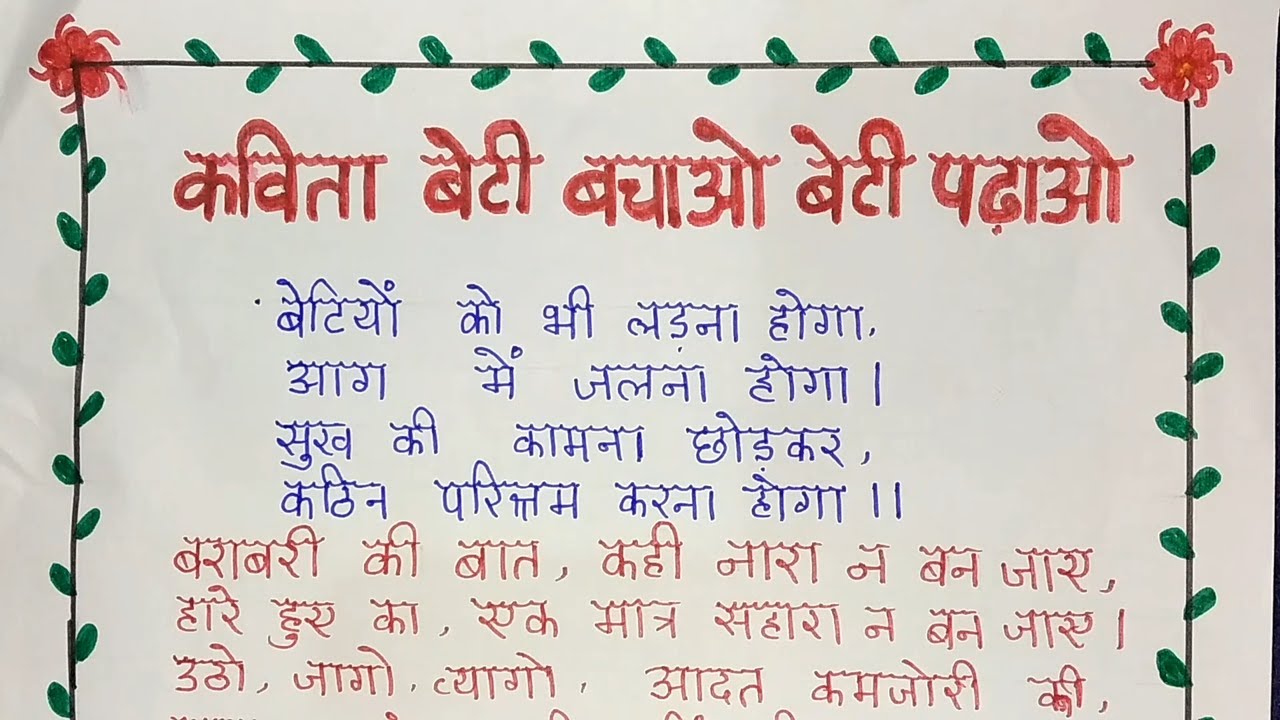 कविता बेटी बचाओ बेटी पढ़ाओ
बेटियों को भी लड़ना होगा,
आग में जलना होगा।
सुख की कामना छोड़कर,
कठिन परिश्रम करना होगा।।
बराबरी की बात, कही नारा न बन जाए,
हारे हुए का, एक मात्र सहारा न बन जाए।
उठो, जागो, त्यागो, आदत कमजोरी की,